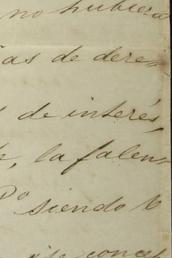 no hubiera
ías de dere-
s de interés,
, la falen-
Do siendo b
concep